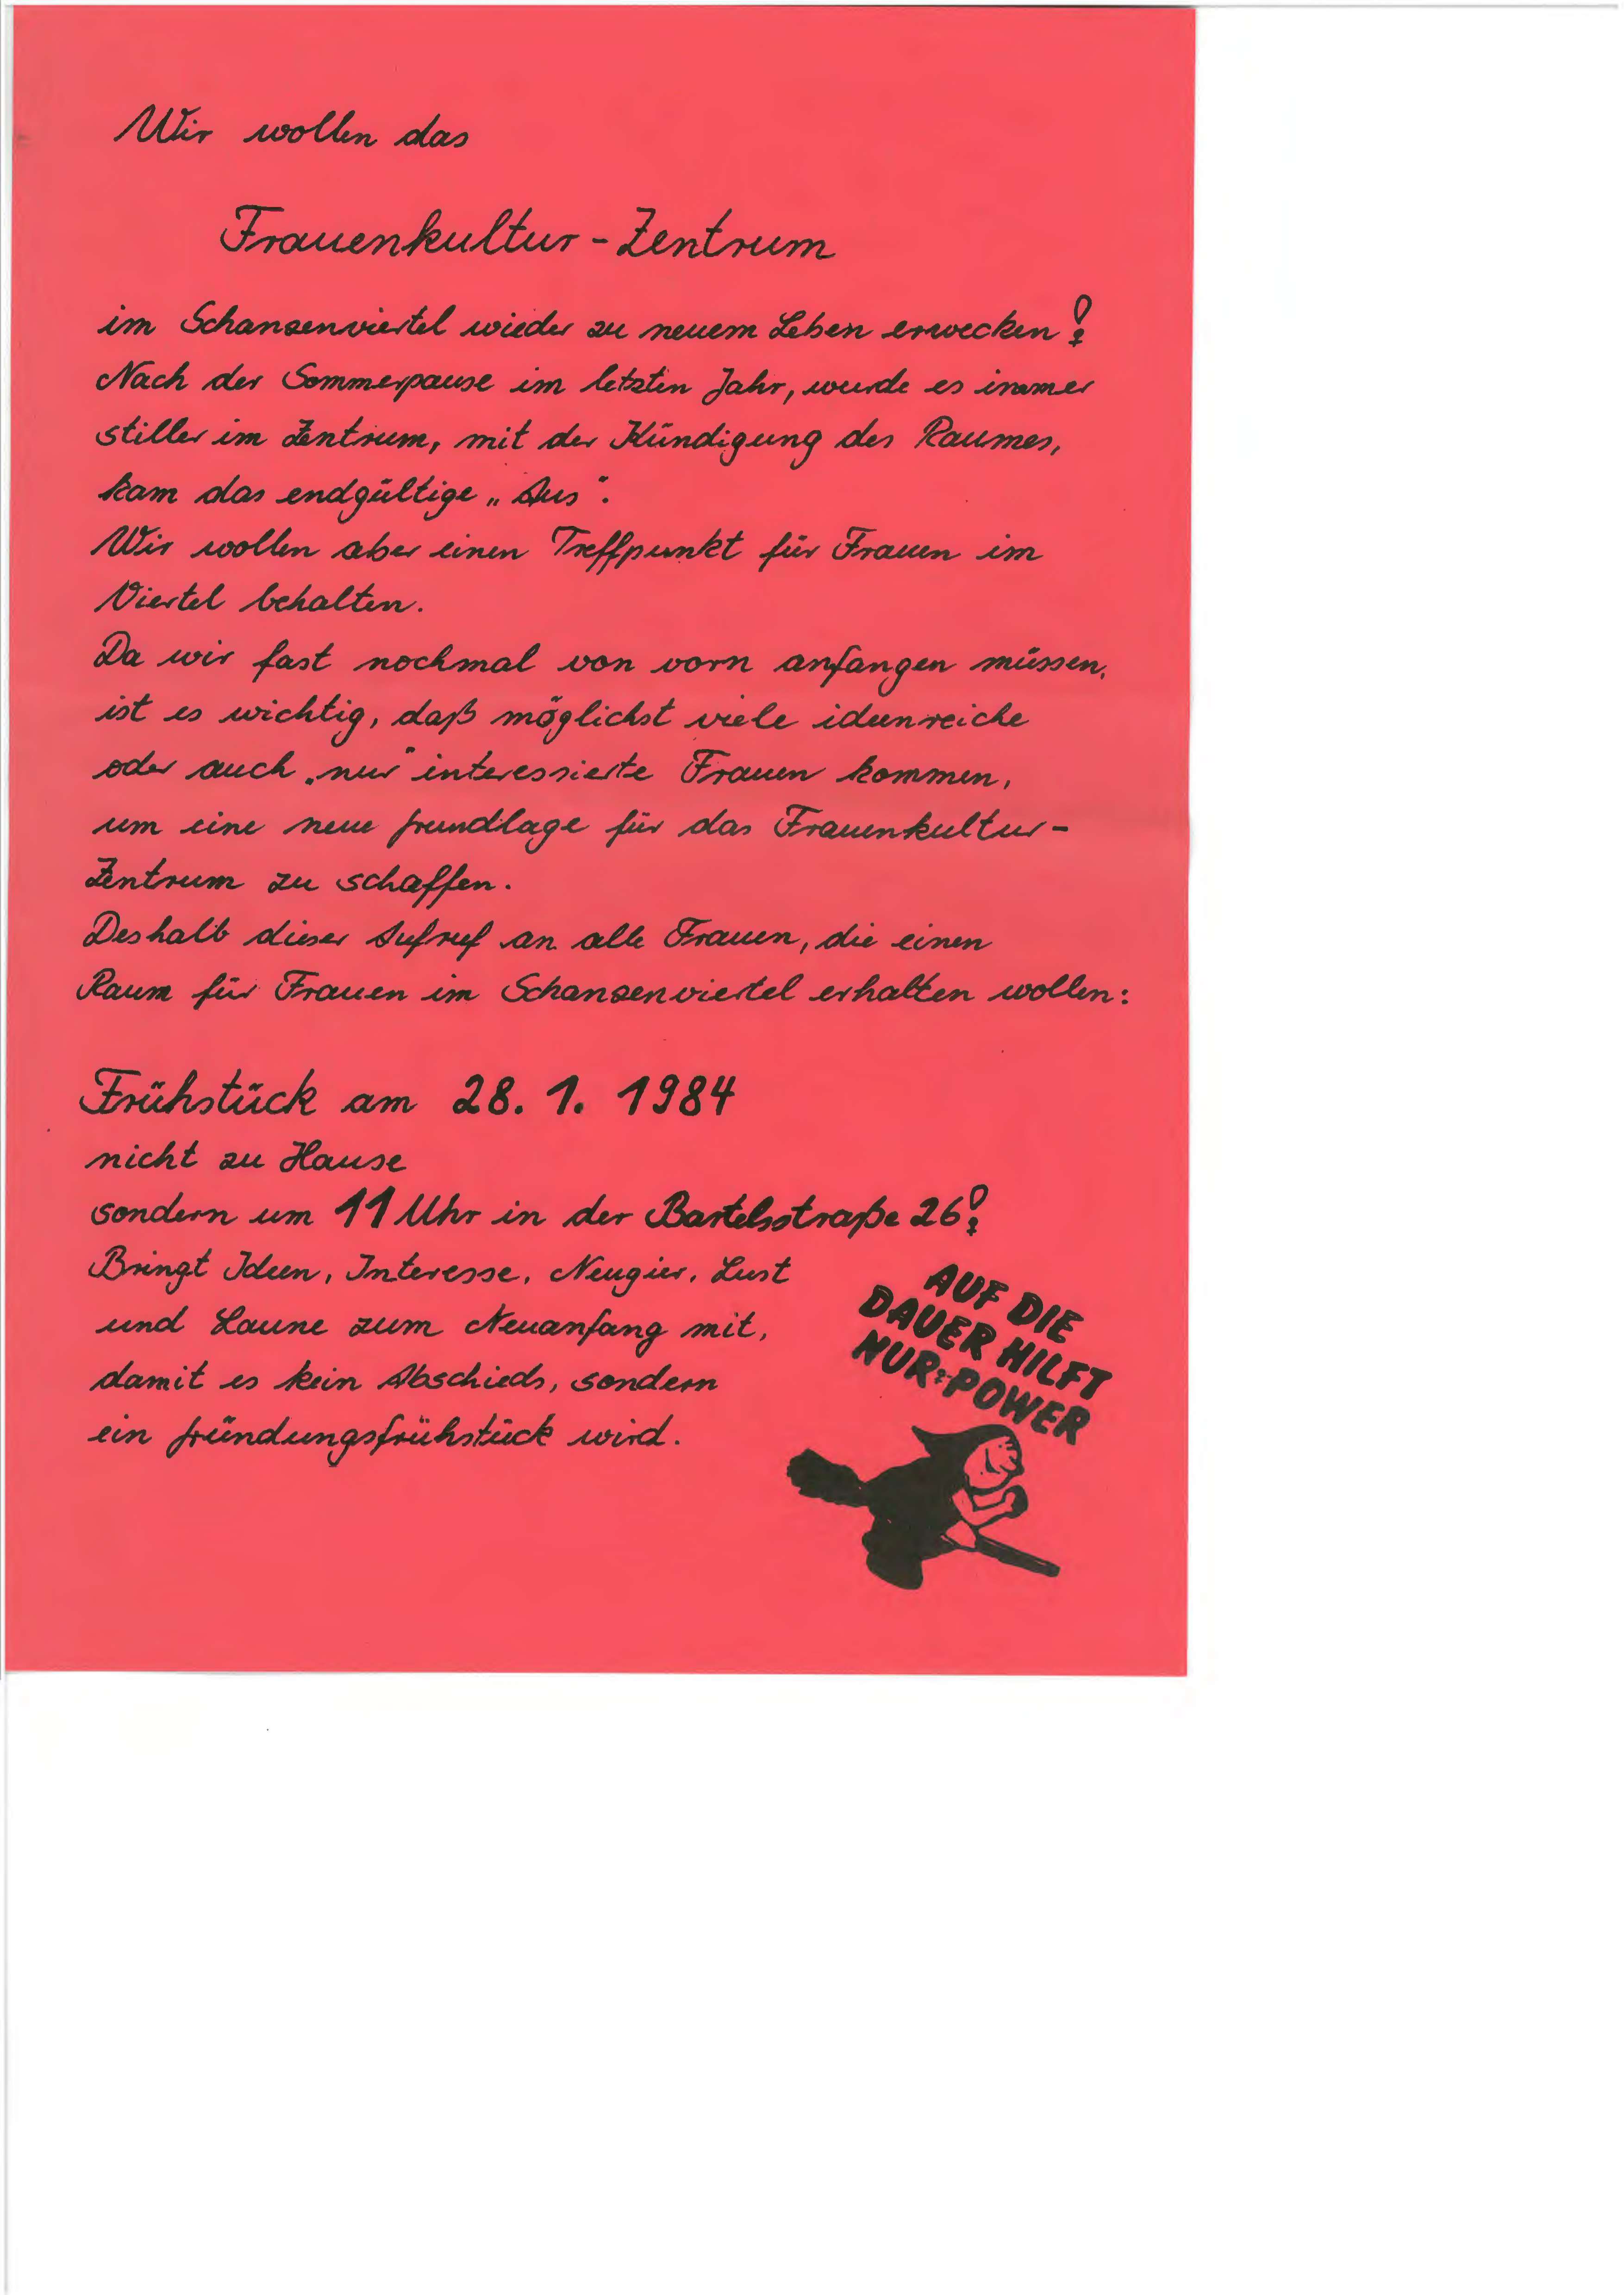 Wir wollen das
Frauenkultur-Zentrum
im Schanzenviertel wieder zu neuem Leben erwecken!
Nach der Sommerpause im letzten Jahr, wurde es immer
stiller im Zentrum, mit der Kündigung des Raumes,
kam das endgültige „Aus“.
Wir wollen aber einen Treffpunkt für Frauen im
Viertel behalten.
Da wir fast nochmal von vorn anfangen müssen,
ist es wichtig, daß möglichst viele ideenreiche
oder auch „nur“ interessierte Frauen kommen,
um eine neue Grundlage für das Frauenkultur-
Zentrum zu schaffen.
Deshalb dieser Aufruf an alle Frauen, die einen
Raum für Frauen im Schanzenviertel erhalten wollen:
Frühstück am 28. 1. 1984
nicht zu Hause
sondern um 11 Uhr in der Bartelsstraße 26!
Bringt Ideen, Interesse, Neugier, Lust
und Laune zum Neuanfang mit,
damit es kein Abschieds, sondern
ein Gründungsfrühstück wird.
AUF DIE
DAUER HILFT
NUR ♀-POWER